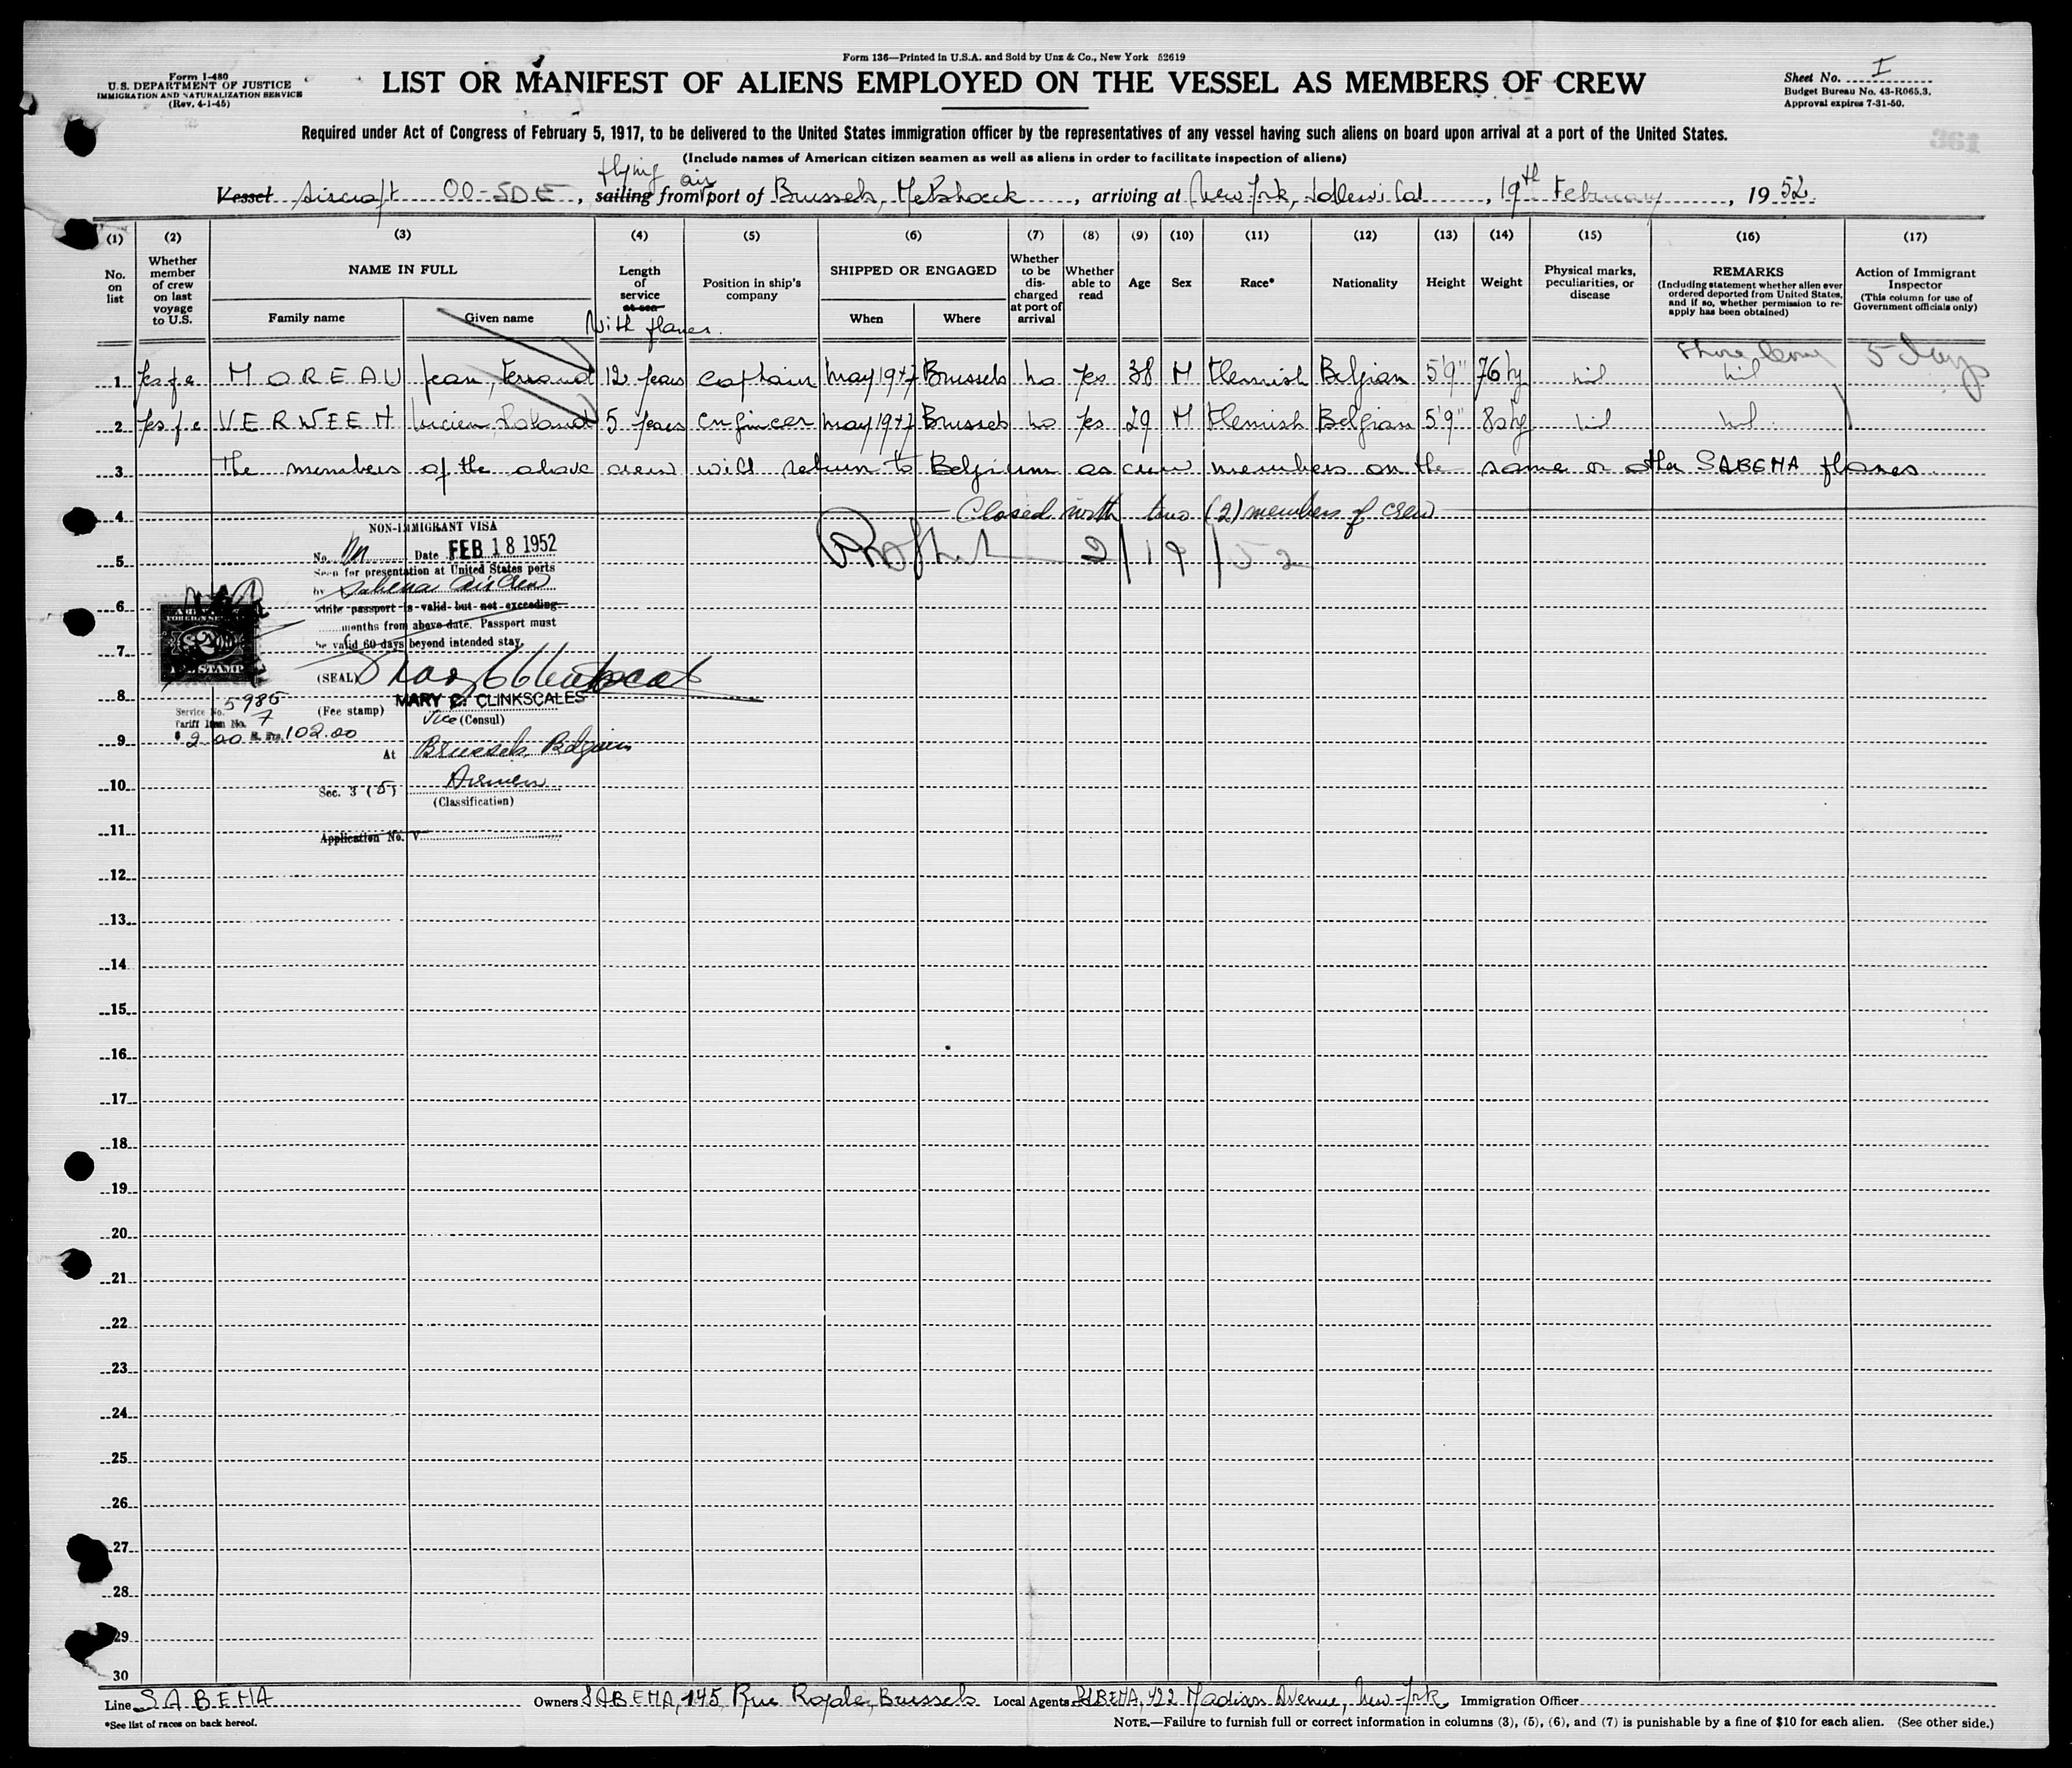 Form 136—Printed in U.S.A. and Sold by Unz & Co., New York 52619
Form I-480
U.S. DEPARTMENT OF JUSTICE
IMMIGRATION AND NATURALIZATION SERVICE
(Rev. 4-1-45)
LIST OR MANIFEST OF ALIENS EMPLOYED ON THE VESSEL AS MEMBERS OF CREW
Sheet No. I
Budget Bureau No. 43-R065.3.
Approval expires 7-31-50.
Required under Act of Congress of February 5, 1917, to be delivered to the United States immigration officer by the representatives of any vessel having such aliens on board upon arrival at a port of the United States.
(Include names of American citizen seamen as well as aliens in order to facilitate inspection of aliens)
flying air
Vessel Aircraft OO-SDE, sailing from port of Brussels, Melsbroek, arriving at New York, Idlewild, 19th February, 1952
(1) (2) (3) (4) (5) (6) (7) (8) (9) (10) (11) (12) (13) (14) (15) (16) (17)
No. on list
Whether member of crew on last voyage to U.S.
NAME IN FULL
Family name
Given name
Length of service at sea
With planes.
Position in ship's company
SHIPPED OR ENGAGED
When
Where
Whether to be discharged at port of arrival
Whether able to read
Age
Sex
Race*
Nationality
Height
Weight
Physical marks, peculiarities, or disease
REMARKS
(Including statement whether alien ever ordered deported from United States, and if so, whether permission to reapply has been obtained)
Action of Immigrant Inspector
(This column for use of Government officials only)
Shore 5 Days
1 MOREAU Jean, Fernand 12 years captain May 1947 Brussels no yes 38 M Flemish Belgian 5'9" 76 kg nil nil
2 Lucien, Roland 5 years engineer May 1947 Brussels no yes 29 M Flemish Belgian 5'9" 80 kg nil nil
3 The members of the above crew will return to Belgium as crew members on the same or other SABENA planes.
4 Closed with two (2) members of crew
5 2/19/52
6
7
8
9
10
11
12
13
14
15
16
17
18
19
20
21
22
23
24
25
26
27
28
29
30
NON-IMMIGRANT VISA
No. Date FEB 18 1952
Seen for presentation at United States ports
by Sabena Air Crew
while passport is valid but not exceeding
months from above date. Passport must
be valid 60 days beyond intended stay.
(SEAL)
MARY E. CLINKSCALES
(Fee stamp) Vice (Consul)
FEE STAMP
Service No. 5985
Tariff Item No. 7
$ 2.00 B. Frs. 102.00
At Brussels, Belgium
Sec. 3 (5) Airmen
(Classification)
Application No. V
Line SABENA
Owners SABENA, 145 Rue Royale, Brussels
Local Agents SABENA, 422 Madison Avenue, New-York
Immigration Officer
*See list of races on back hereof.
NOTE.—Failure to furnish full or correct information in columns (3), (5), (6), and (7) is punishable by a fine of $10 for each alien. (See other side.)